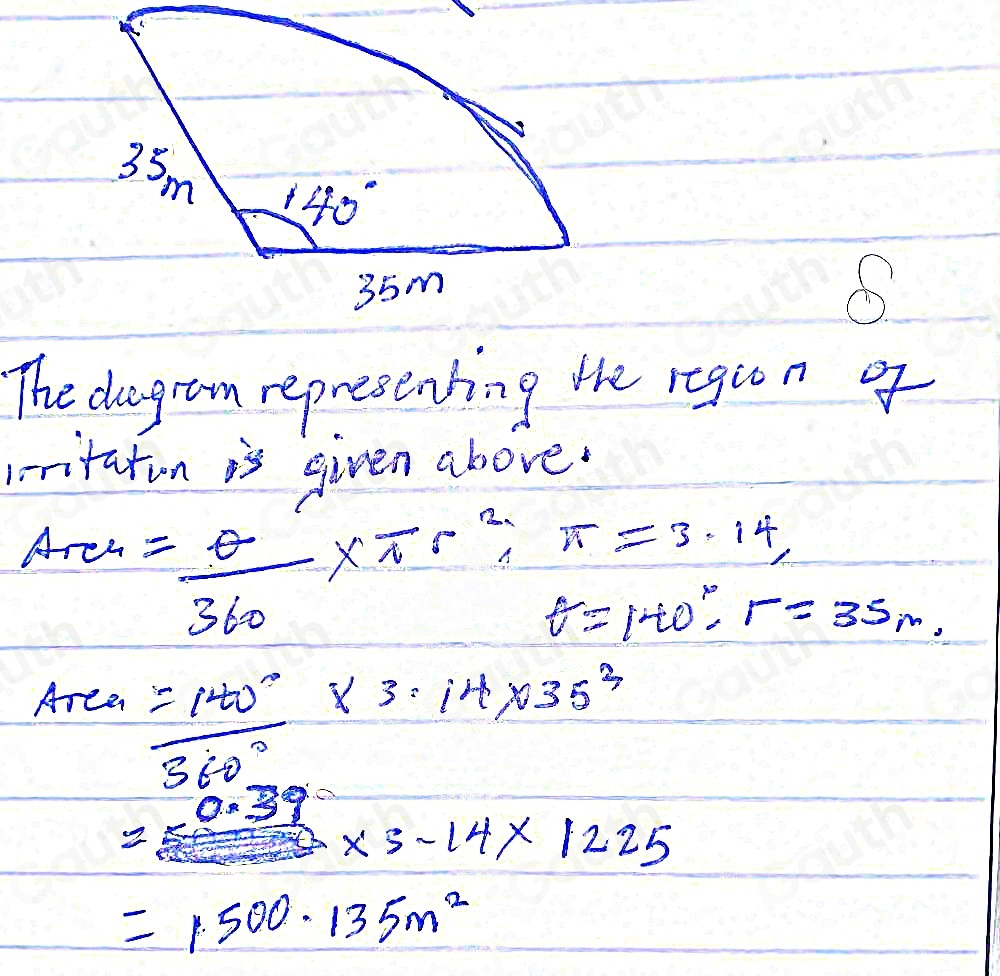 35m
140°
35m
8
The diagram representing the region of
irritation is given above.
Area = θ/360 × πr²; π = 3.14,
θ = 140°, r = 35m.
Area = 140°/360° × 3.14 × 35²
= 0.39 × 3.14 × 1225
= 1500.135m²